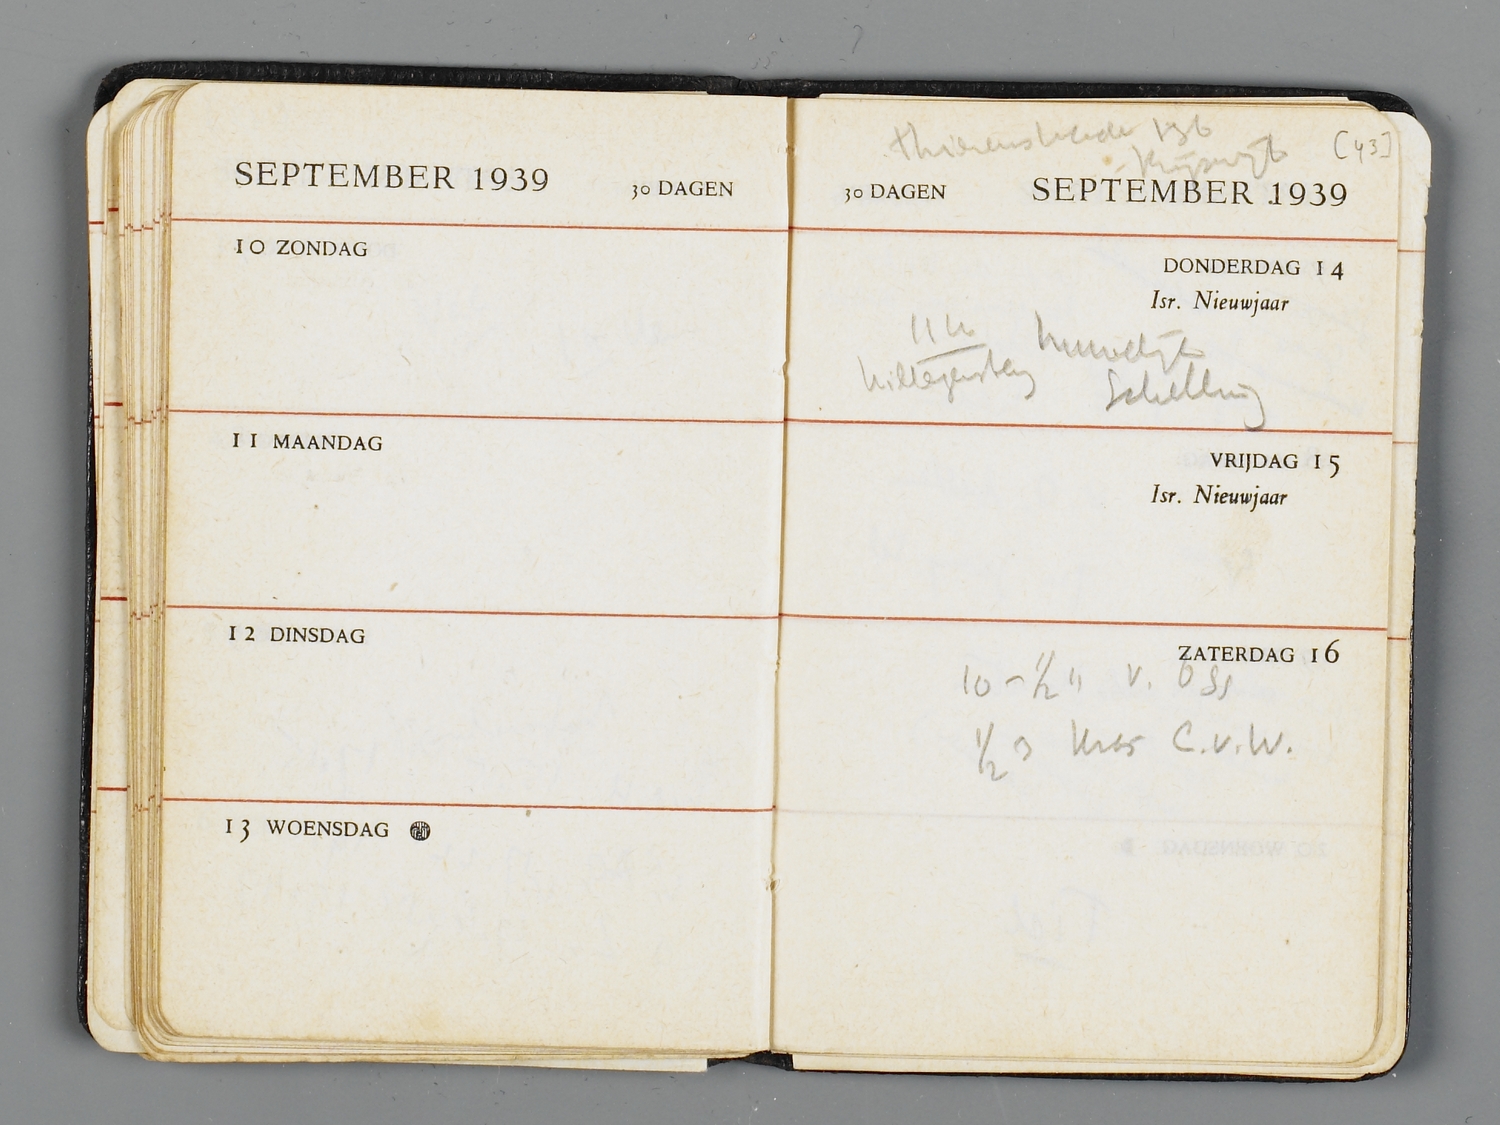 SEPTEMBER 1939
30 DAGEN
10 ZONDAG
11 MAANDAG
12 DINSDAG
13 WOENSDAG
[43]
30 DAGEN
SEPTEMBER 1939
DONDERDAG 14
Isr. Nieuwjaar
Schelling
VRIJDAG 15
Isr. Nieuwjaar
ZATERDAG 16
10 - 1/2 11 v. Oss
1/2 3 C.v.W.